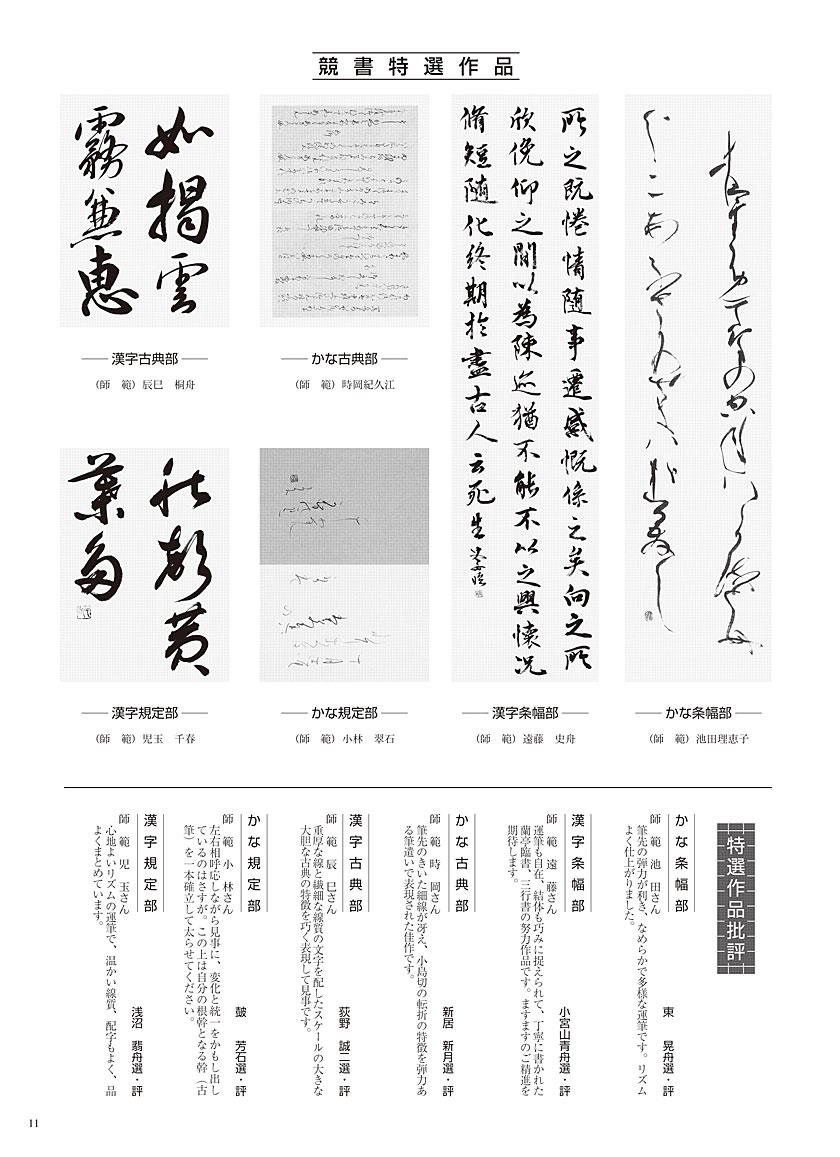 競書特選作品
如揭雲
霧兼恵
漢字古典部
（師　範）辰巳　桐舟
かな古典部
（師　範）時岡紀久江
所之既惓情随事遷感慨係之矣向之所
欣俛仰之間以為陳迹猶不能不以之興懐況
脩短随化終期於盡古人云死生
漢字規定部
（師　範）児玉　千春
かな規定部
（師　範）小林　翠石
漢字条幅部
（師　範）遠藤　史舟
かな条幅部
（師　範）池田理恵子
特選作品批評
かな条幅部
東　晃舟選・評
師　範　池　田さん
筆先の弾力が利き、なめらかで多様な運筆です。リズム
よく仕上がりました。
漢字条幅部
小宮山青舟選・評
師　範　遠　藤さん
運筆も自在、結体も巧みに捉えられて、丁寧に書かれた
蘭亭臨書、三行書の努力作品です。ますますのご精進を
期待します。
かな古典部
新居　新月選・評
師　範　時　岡さん
筆先のきいた細線が冴え、小島切の転折の特徴を弾力あ
る筆遣いで表現された佳作です。
漢字古典部
荻野　誠二選・評
師　範　辰　巳さん
重厚な線と繊細な線質の文字を配したスケールの大きな
大胆な古典の特徴を巧く表現して見事です。
かな規定部
皷　芳石選・評
師　範　小　林さん
左右相呼応しながら見事に、変化と統一をかもし出し
ているのはさすが。この上は自分の根幹となる幹（古
筆）を一本確立して太らせてください。
漢字規定部
浅沼　翡舟選・評
師　範　児　玉さん
心地よいリズムの運筆で、温かい線質、配字もよく、品
よくまとめています。
11